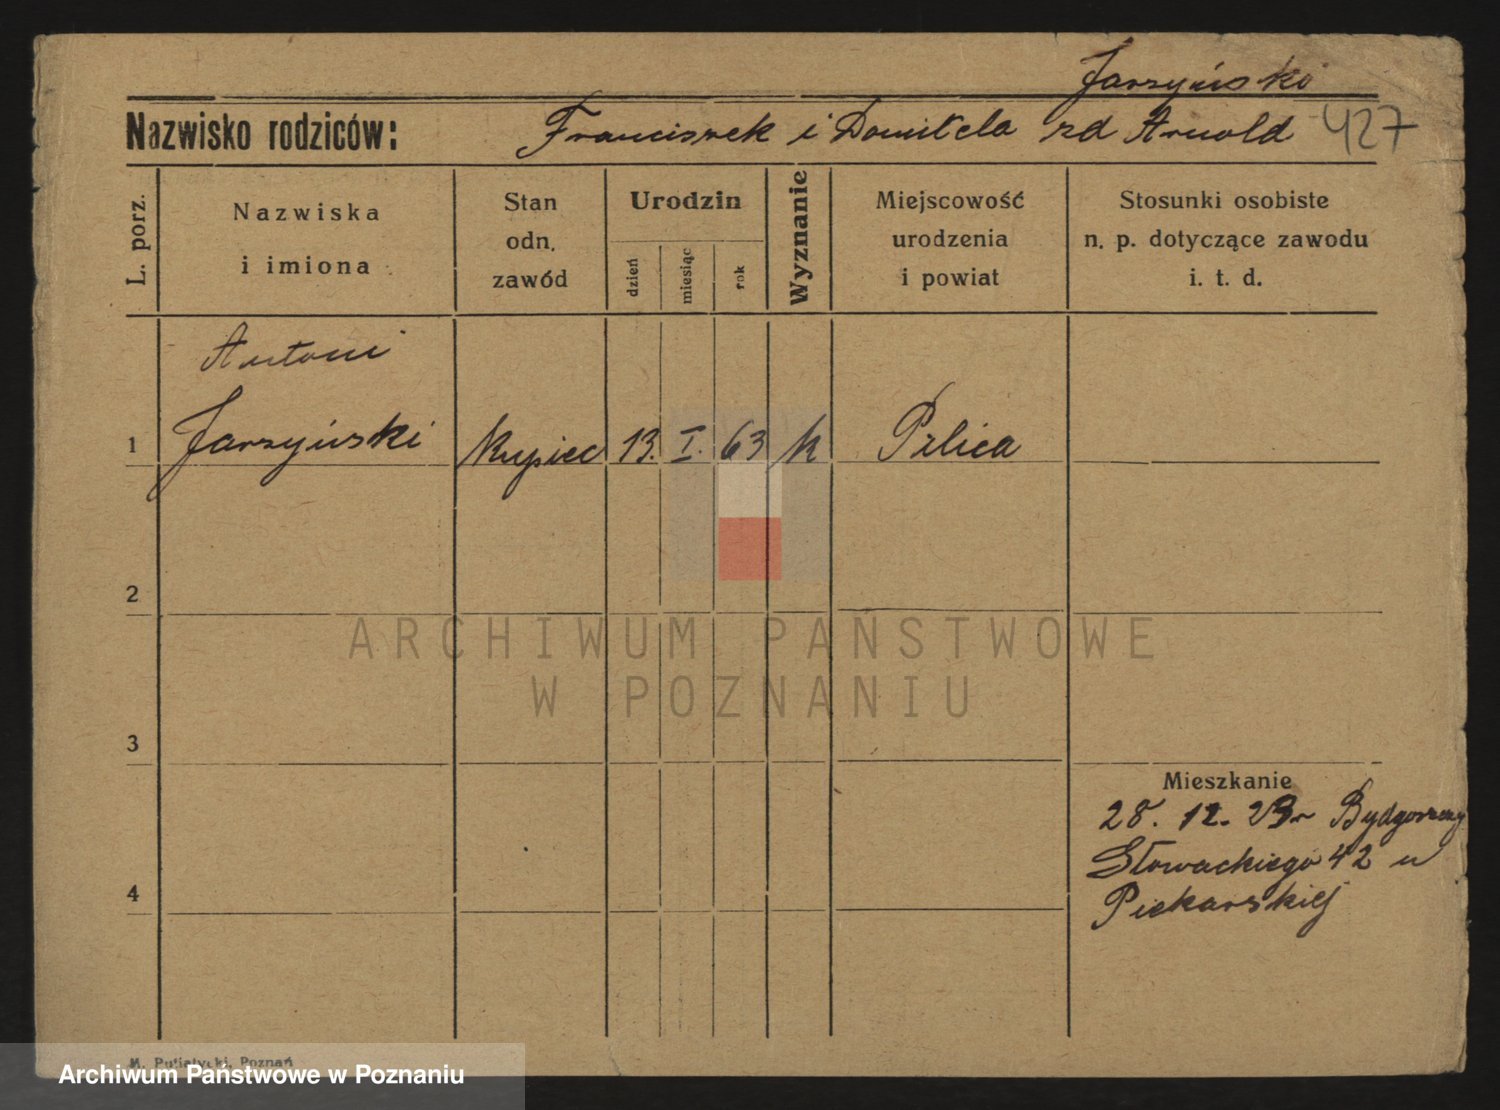 Jarzyński
Nazwisko rodziców: Franciszek i Domicela zd Arnold 427
L. porz.
Nazwiska
i imiona
Stan
odn.
zawód
Urodzin
dzień
miesiąc
rok
Wyznanie
Miejscowość
urodzenia
i powiat
Stosunki osobiste
n. p. dotyczące zawodu
i. t. d.
Antoni
1 Jarzyński Kupiec 13. I. 63 k Pilica
2
ARCHIWUM PAŃSTWOWE
W POZNANIU
3
Mieszkanie
28. 12. 23r Bydgoszczy
Słowackiego 42 u
4
Piekarskiej
M. Putiatycki, Poznań
Archiwum Państwowe w Poznaniu